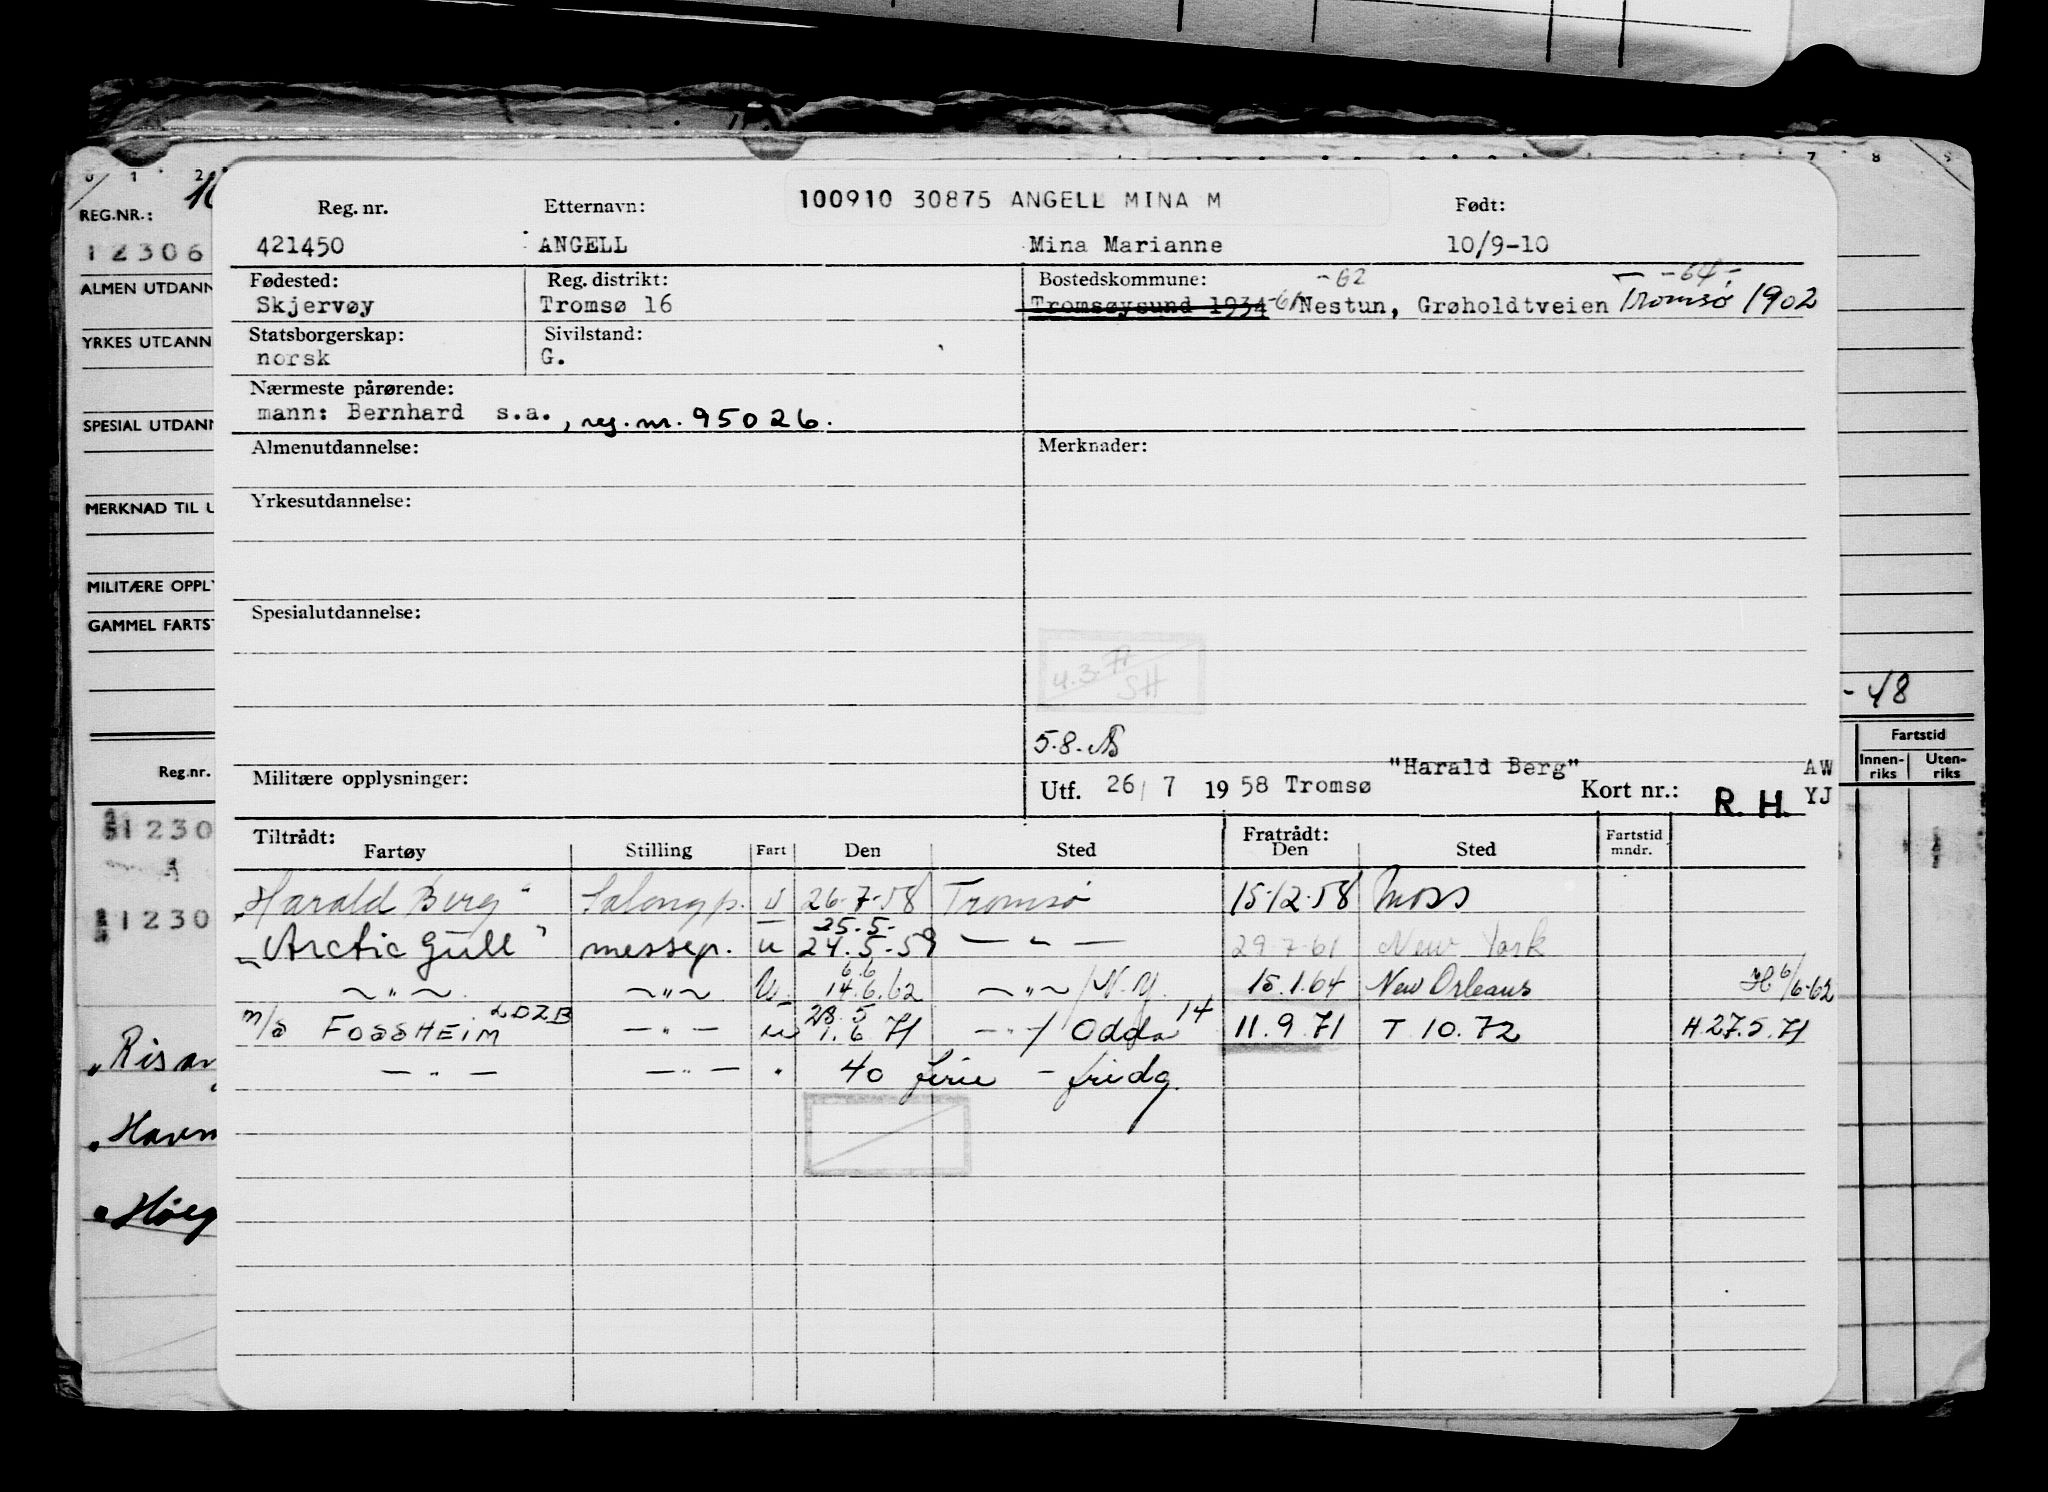 100910 30875 ANGELL MINA M
Reg. nr. Etternavn: Født:
421450 ANGELL Mina Marianne 10/9-10
Fødested: Reg. distrikt: Bostedskommune: -62 -64-
Skjervøy Tromsø 16 Tromsøysund 1934 -61 Nestun, Grøholdtveien Tromsø 1902
Statsborgerskap: Sivilstand:
norsk G.
Nærmeste pårørende:
mann: Bernhard s.a., reg. nr. 95026.
Almenutdannelse: Merknader:
Yrkesutdannelse:
Spesialutdannelse:
4.3.71
SH
5.8.
Militære opplysninger: Utf. 26/ 7 19 58 Tromsø "Harald Berg" Kort nr.: R. H. AW
YJ
Tiltrådt: Fratrådt:
Fartøy Stilling Fart Den Sted Den Sted Fartstid mndr.
"Harald Berg" Salongp. u 26-7-58 Tromsø 15-12-58 Moss
25.5-
"Arctic Gull" messep. u 24.5-59 — " — 29-7-61 New York
6.6
— " — — " — u. 14.6.62 — " — / N.Y. 15.1.64 New Orleans H 6/6-62
28.5 14
m/s FOSSHEIM LDZB — " — u 1.6 71 — " — / Odda 11.9.71 T 10.72 H.27.5.71
— " — — " — " 40 ferie - fridg.
0 1 2 7 8 9
REG.NR.: 10
12306
ALMEN UTDANN
YRKES UTDANN
SPESIAL UTDANN
MERKNAD TIL U
MILITÆRE OPPLY
GAMMEL FARTST
Reg.nr.
1230
1230
"Risan
"Havn
"Høeg
- 48
Fartstid
Innen-riks Uten-riks